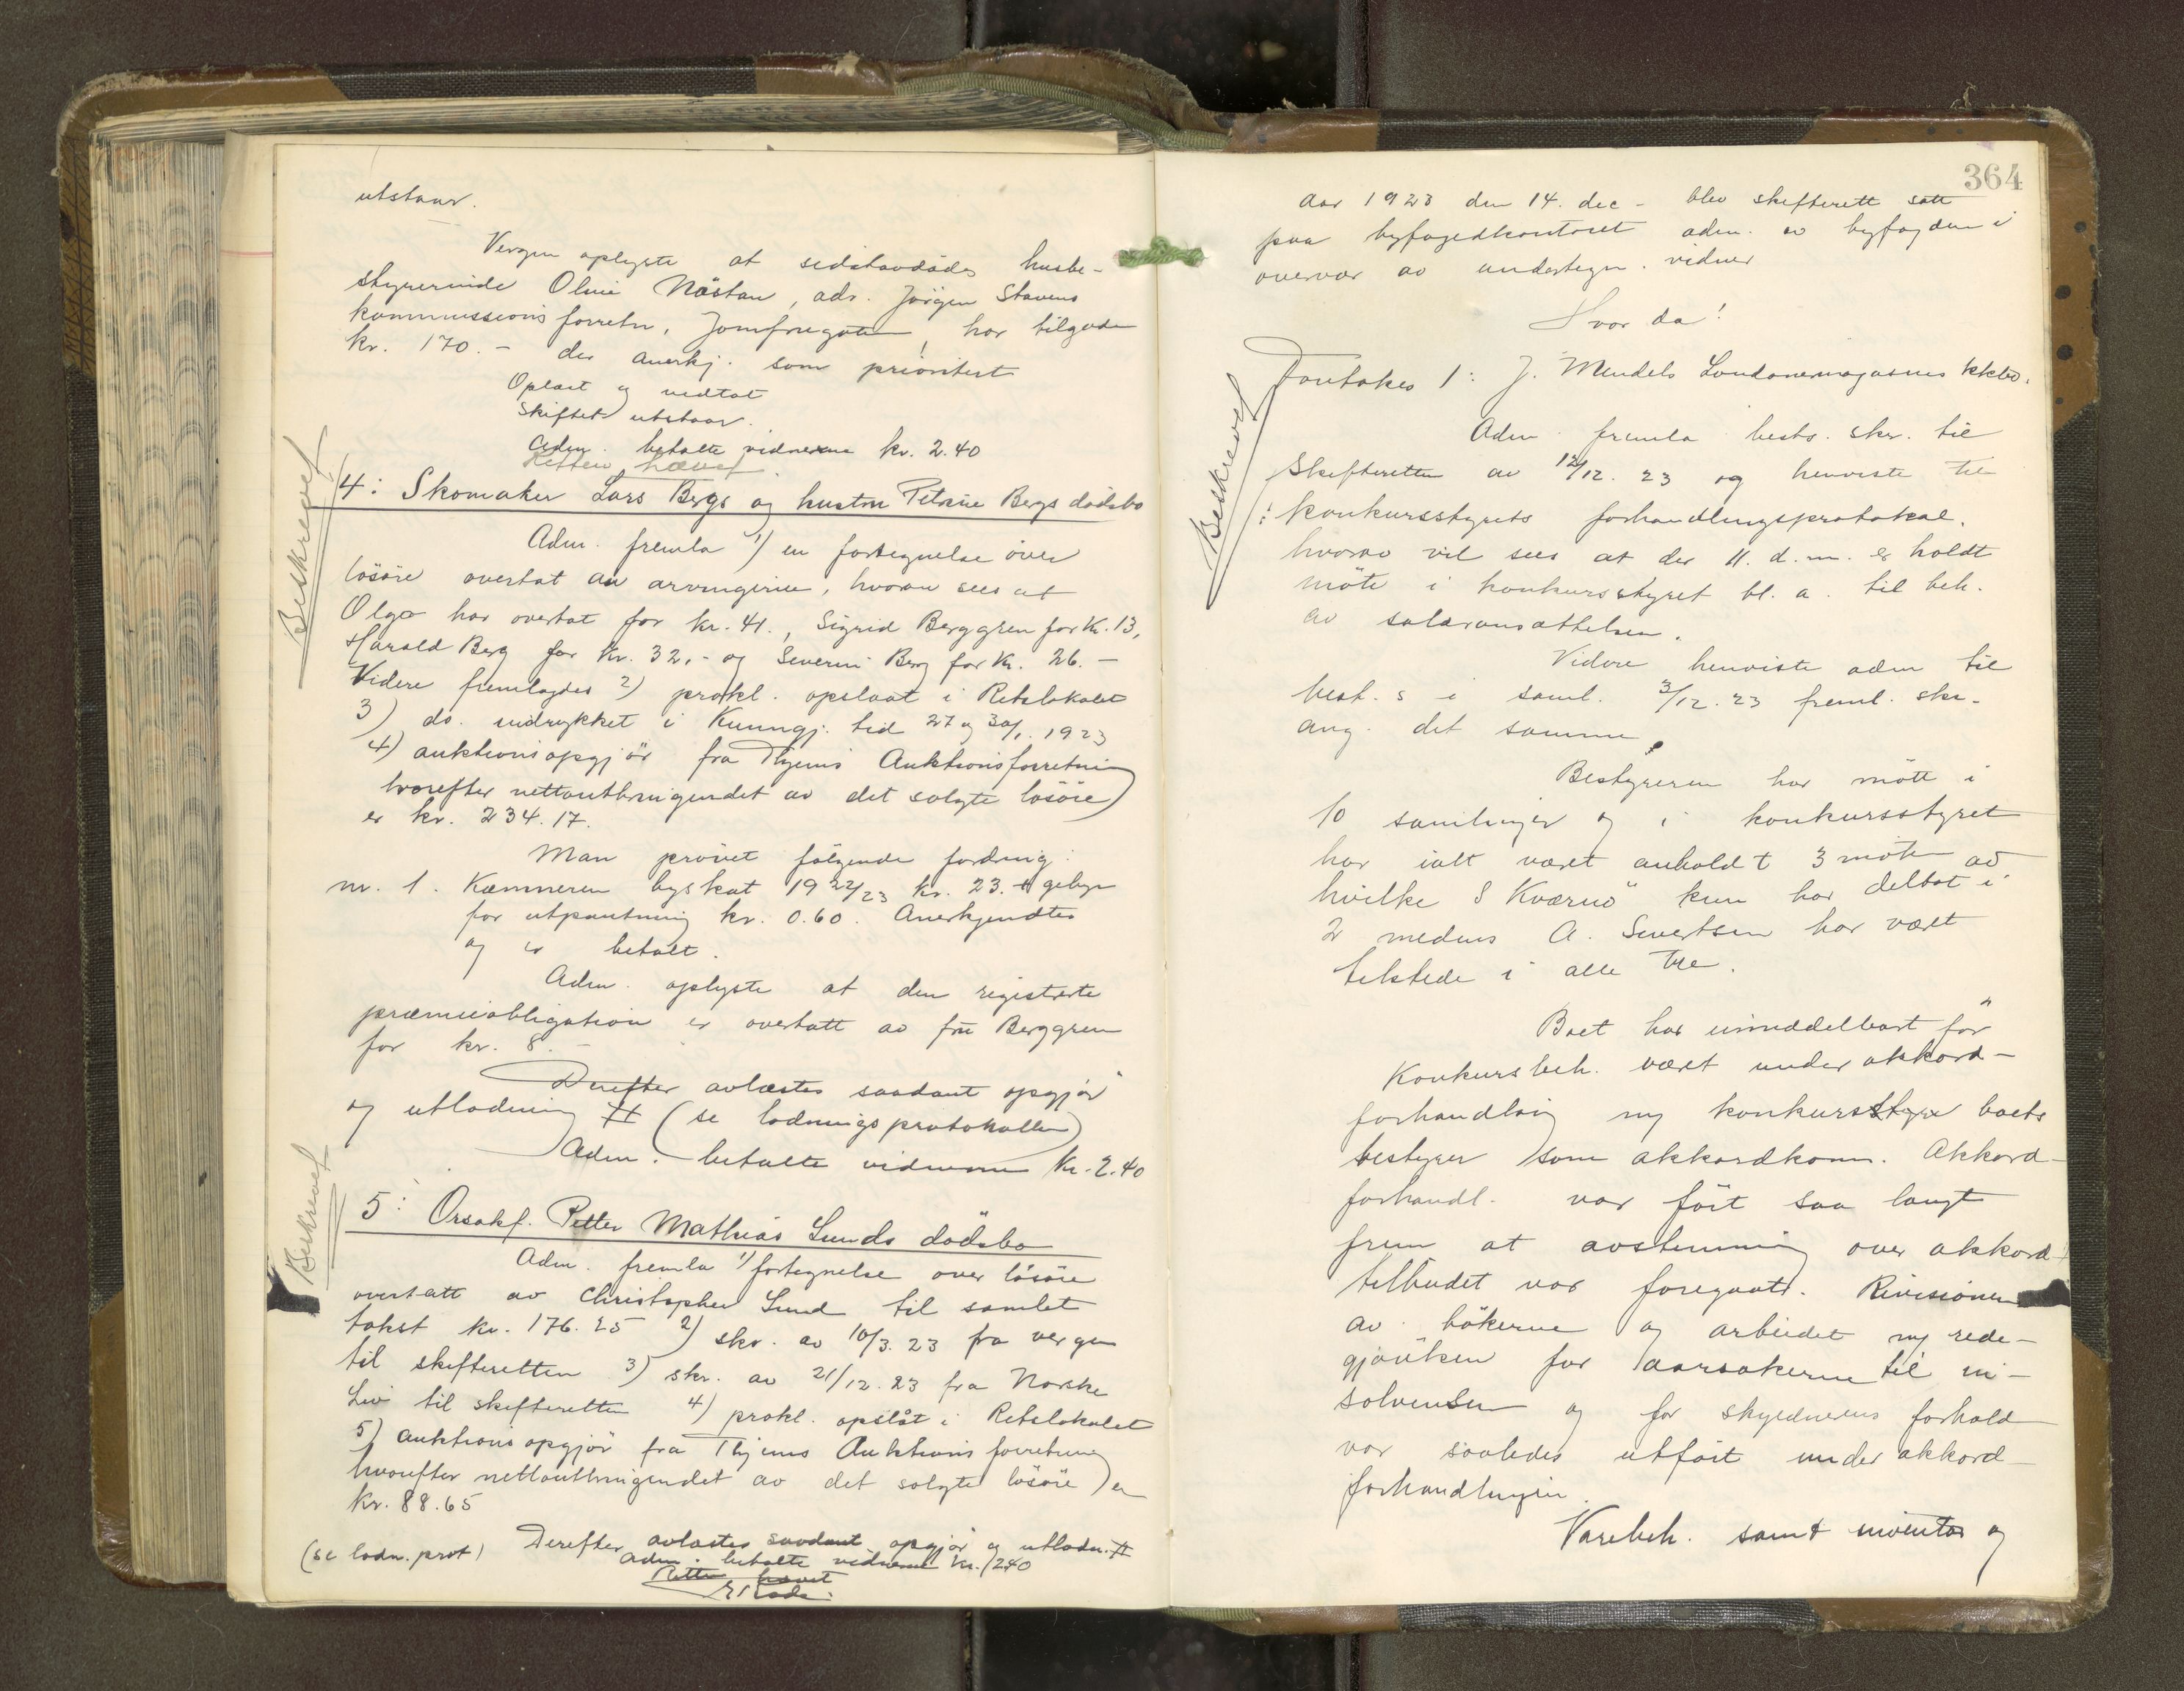 utstaar.
Vergen oplyste at sidstavdødes husbe-
styrerinde Oline Nöstan, adr. Jörgen Stavens
kommissions forretn, Jomfrugaten, har tilgode
kr. 170.- der anerkj. som prioritert
Oplæst og vedtat
Skiftet utstaar.
Adm. betalte vidnerne kr. 2.40
Retten hævet.
Beskrevet
4: Skomaker Lars Bergs og hustru Petrine Bergs dödsbo
Adm. fremla 1) en fortegnelse över
lösöre overtat av arvingerne, hvorav sees at
Olga har overtat for kr. 41., Sigrid Berggren for Kr. 13,
Harald Berg for kr. 32,- og Severin Berg for kr. 26.-
Videre fremlagdes 2) prokl. opslaat i Retslokalet
3) do. indrykket i Kunngj. tid 27 og 30/1. 1923
4) auktionsopgjör fra Thjems Auktionsforretning
hvorefter nettoutbringendet av det solgte lösöre
er kr. 234.17.
Man prövet fölgende fordring:
nr. 1. Kæmneren byskat 1922/23 kr. 23.+ gebyr
for utpantning kr. 0.60. Anerkjendtes
og er betalt.
Adm. oplyste at den registrerte
præmieobligation er overtatt av fru Berggren
for kr. 8.-
Derefter avlæstes saadant opgjör
og utlodning # (se lodningsprotokollen)
Adm. betalte vidnerne kr. 2.40
Beskrevet
5: Orsakf. Petter Mathias Lunds dödsbo
Adm. fremla 1) fortegnelse over lösöre
overtatt av Christopher Lund til samlet
takst kr. 176.25 2) skr. av 10/3. 23 fra vergen
til skifteretten 3) skr. av 21/12. 23 fra Norske
Liv til skifteretten 4) prokl. opslåt i Retslokalet
5) auktionsopgjör fra Thjems Auktionsforretning
hvorefter nettoutbringendet av det solgte lösöre er
kr. 88.65
(se lodn. prot) Derefter avlæstes saadant opgjör og utlodn. #
Adm. betalte vidnerne kr. 2.40
Retten hævet
364
Aar 1923 den 14. dec - blev skifterett satt
paa byfogedkontoret adm. av byfogden i
overvær av undertegn. vidner
Hvor da!
Beskrevet
Foretokes 1: J. Mendels Londonermagasines kkbo.
Adm. fremla besty. skr. til
Skifteretten av 12/12. 23 og henviste til
konkursstyrets forhandlingsprotokol,
hvorav vil sees at der 11. d.m. er holdt
möte i konkursstyret bl. a. til beh.
av salæransættelsen.
Videre henviste adm til
best. s i saml. 3/12. 23 freml. skr.
ang. det samme.
Bestyreren har mött i
10 samlinger og i konkursstyret
har ialt været anholdt 3 möter av
hvilke S Kværnö kun har deltat i
2 medens A. Sivertsen har vært
tilstede i alle tre.
Boet har umiddelbart för
Konkursbeh. været under akkord-
forhandling m/ konkursstyre boets
bestyrer som akkordkom. Akkord-
forhandl. var fört saa langt
frem at avstemning over akkord-
tilbudet var foregaatt. Revisionen
av bökerne og arbeidet m/ rede-
gjörelsen for aarsakerne til in-
solvensen og for skyldnerens forhold
var saaledes utfört under akkord-
forhandlingen.
Varebeh. samt inventar og